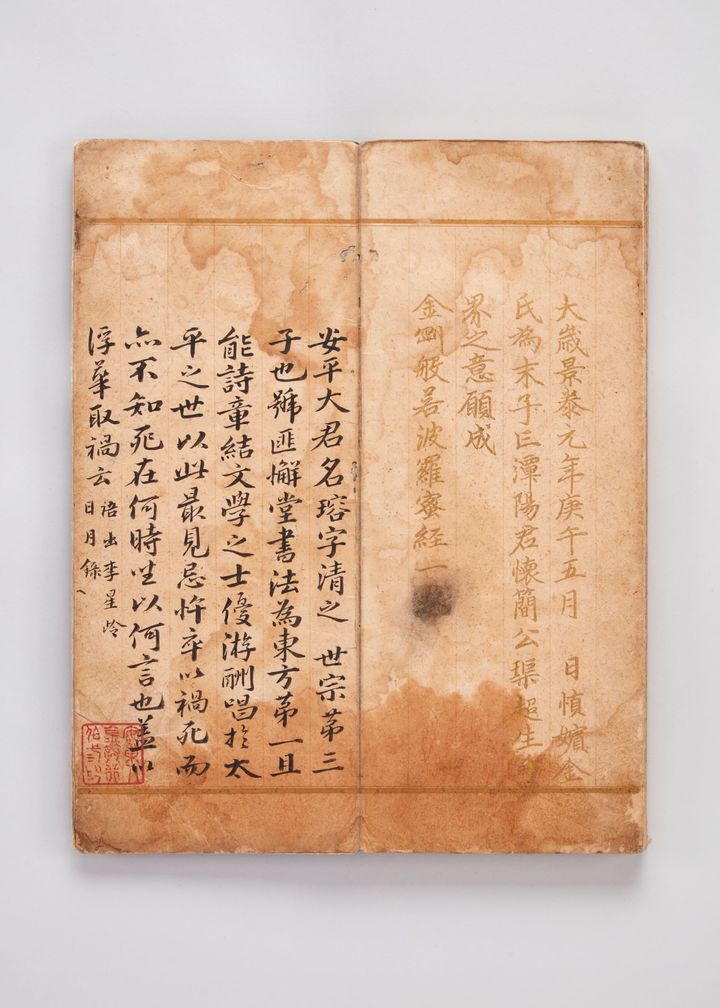 大歲景泰元年庚午五月 日慎嬪金
氏為末子亡潭陽君懷簡公璖超生
界之意願成
金剛般若波羅蜜經一
安平大君名瑢字清之 世宗第三
子也號匪懈堂書法為東方第一且
能詩章結文學之士優游酬唱於太
平之世以此最見忌忤卒以禍死而
亦不知死在何時坐以何言也蓋以
浮華取禍云
语出李星岭
日月錄